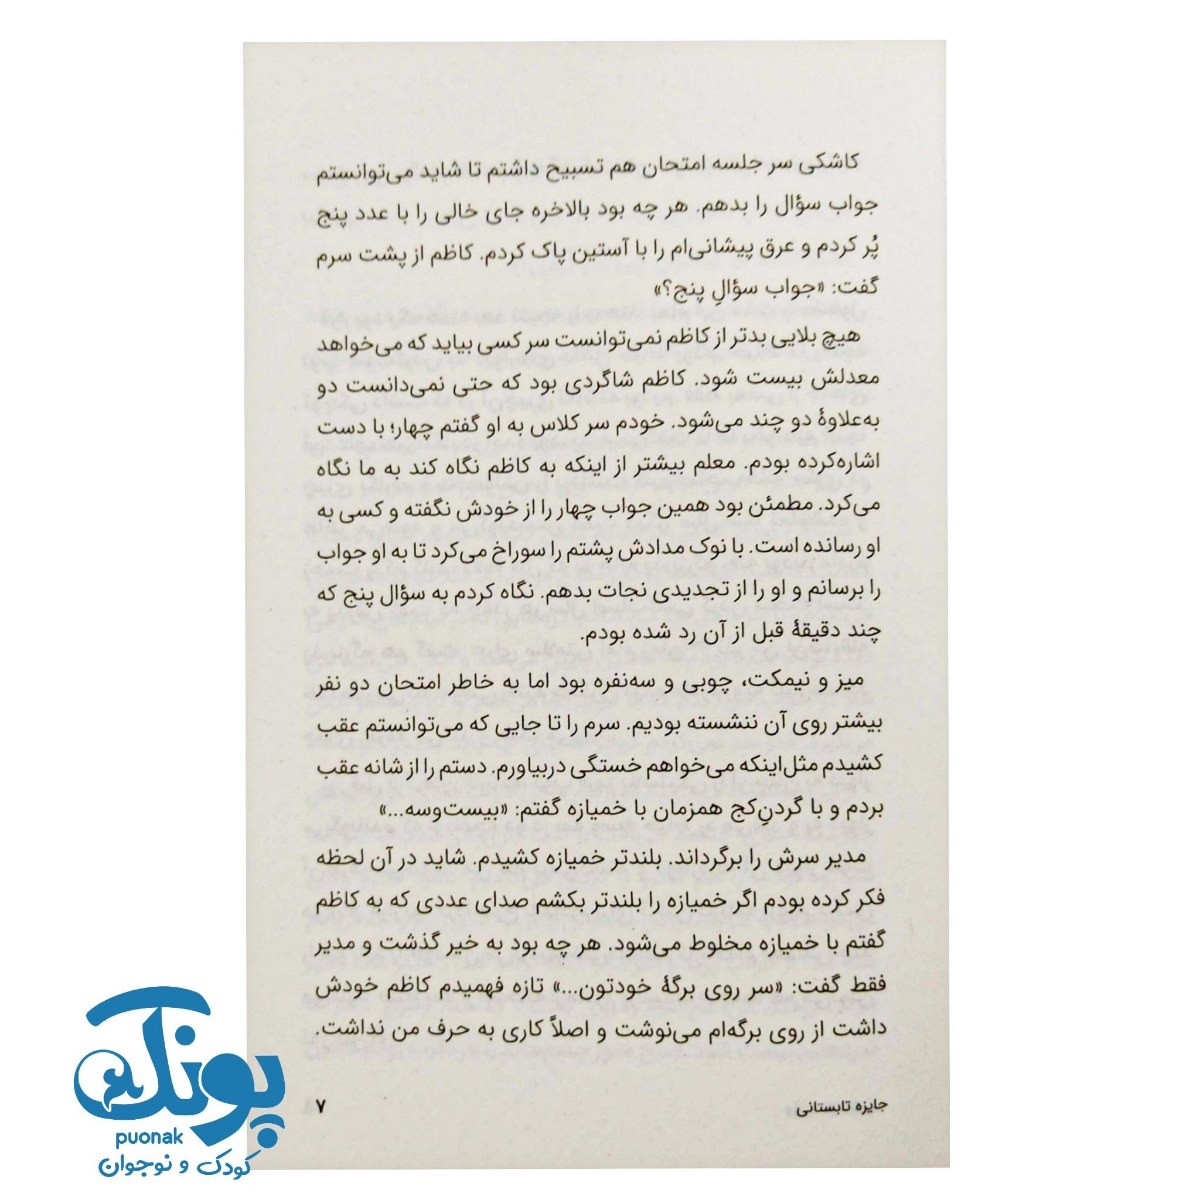 کاشکی سر جلسه امتحان هم تسبیح داشتم تا شاید می‌توانستم
جواب سؤال را بدهم. هر چه بود بالاخره جای خالی را با عدد پنج
پُر کردم و عرق پیشانی‌ام را با آستین پاک کردم. کاظم از پشت سرم
گفت: «جواب سؤالِ پنج؟»
هیچ بلایی بدتر از کاظم نمی‌توانست سر کسی بیاید که می‌خواهد
معدلش بیست شود. کاظم شاگردی بود که حتی نمی‌دانست دو
به‌علاوهٔ دو چند می‌شود. خودم سر کلاس به او گفتم چهار؛ با دست
اشاره‌کرده بودم. معلم بیشتر از اینکه به کاظم نگاه کند به ما نگاه
می‌کرد. مطمئن بود همین جواب چهار را از خودش نگفته و کسی به
او رسانده است. با نوک مدادش پشتم را سوراخ می‌کرد تا به او جواب
را برسانم و او را از تجدیدی نجات بدهم. نگاه کردم به سؤال پنج که
چند دقیقهٔ قبل از آن رد شده بودم.
میز و نیمکت، چوبی و سه‌نفره بود اما به خاطر امتحان دو نفر
بیشتر روی آن ننشسته بودیم. سرم را تا جایی که می‌توانستم عقب
کشیدم مثل‌اینکه می‌خواهم خستگی دربیاورم. دستم را از شانه عقب
بردم و با گردنِ‌کج همزمان با خمیازه گفتم: «بیست‌وسه...»
مدیر سرش را برگرداند. بلندتر خمیازه کشیدم. شاید در آن لحظه
فکر کرده بودم اگر خمیازه را بلندتر بکشم صدای عددی که به کاظم
گفتم با خمیازه مخلوط می‌شود. هر چه بود به خیر گذشت و مدیر
فقط گفت: «سر روی برگهٔ خودتون...» تازه فهمیدم کاظم خودش
داشت از روی برگه‌ام می‌نوشت و اصلاً کاری به حرف من نداشت.
جایزه تابستانی
۷
پونک
puonak
کودک و نوجوان